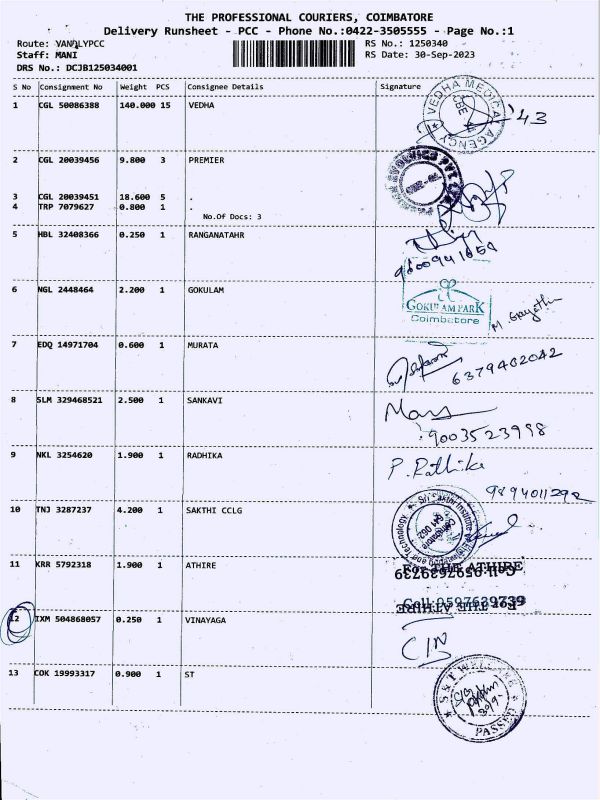 THE PROFESSIONAL COURIERS, COIMBATORE
Delivery Runsheet - PCC - Phone No.:0422-3505555 - Page No.:1
Route: VANILYPCC RS No.: 1250340
Staff: MANI RS Date: 30-Sep-2023
DRS No.: DCJB125034001
S No Consignment No Weight PCS Consignee Details Signature
1 CGL 50086388 140.000 15 VEDHA
VEDHA MEDIA AGENCY CBE
'43
2 CGL 20039456 9.800 3 PREMIER
3 CGL 20039451 18.600 5 .
4 TRP 7079627 0.800 1 .
No.Of Docs: 3
5 HBL 32408366 0.250 1 RANGANATAHR
9600941654
6 NGL 2448464 2.200 1 GOKULAM
GOKULAM PARK
Coimbatore
M. Gayathri
7 EDQ 14971704 0.600 1 MURATA
6379402042
8 SLM 329468521 2.500 1 SANKAVI
Mars
9003523998
9 NKL 3254620 1.900 1 RADHIKA
P. Rathika
9894011292
10 TNJ 3287237 4.200 1 SAKTHI CCLG
Coimbatore
641 062
11 KRR 5792318 1.900 1 ATHIRE
For THE ATHIRE
Cell:9597639739
12 IXM 504868057 0.250 1 VINAYAGA
13 COK 19993317 0.900 1 ST
PASSED